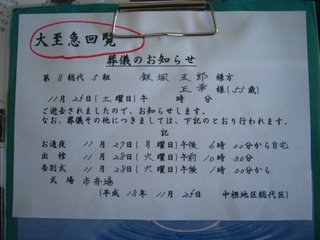 大至急回覧
葬儀のお知らせ
第8総代5組 飯塚五郎様方
正幸様(55歳)
11月25日(土曜日)午 時 分
ご逝去されましたので、お知らせします。
なお、葬儀その他につきましては、下記のとおり行われます。
記
お通夜 11月27日(月曜日)午後 6時00分から自宅
出棺 11月28日(火曜日)午前10時30分
告別式 11月28日(火曜日)午後 1時00分から
式場 市斎場
(平成18年11月25日 中根地区総代区)